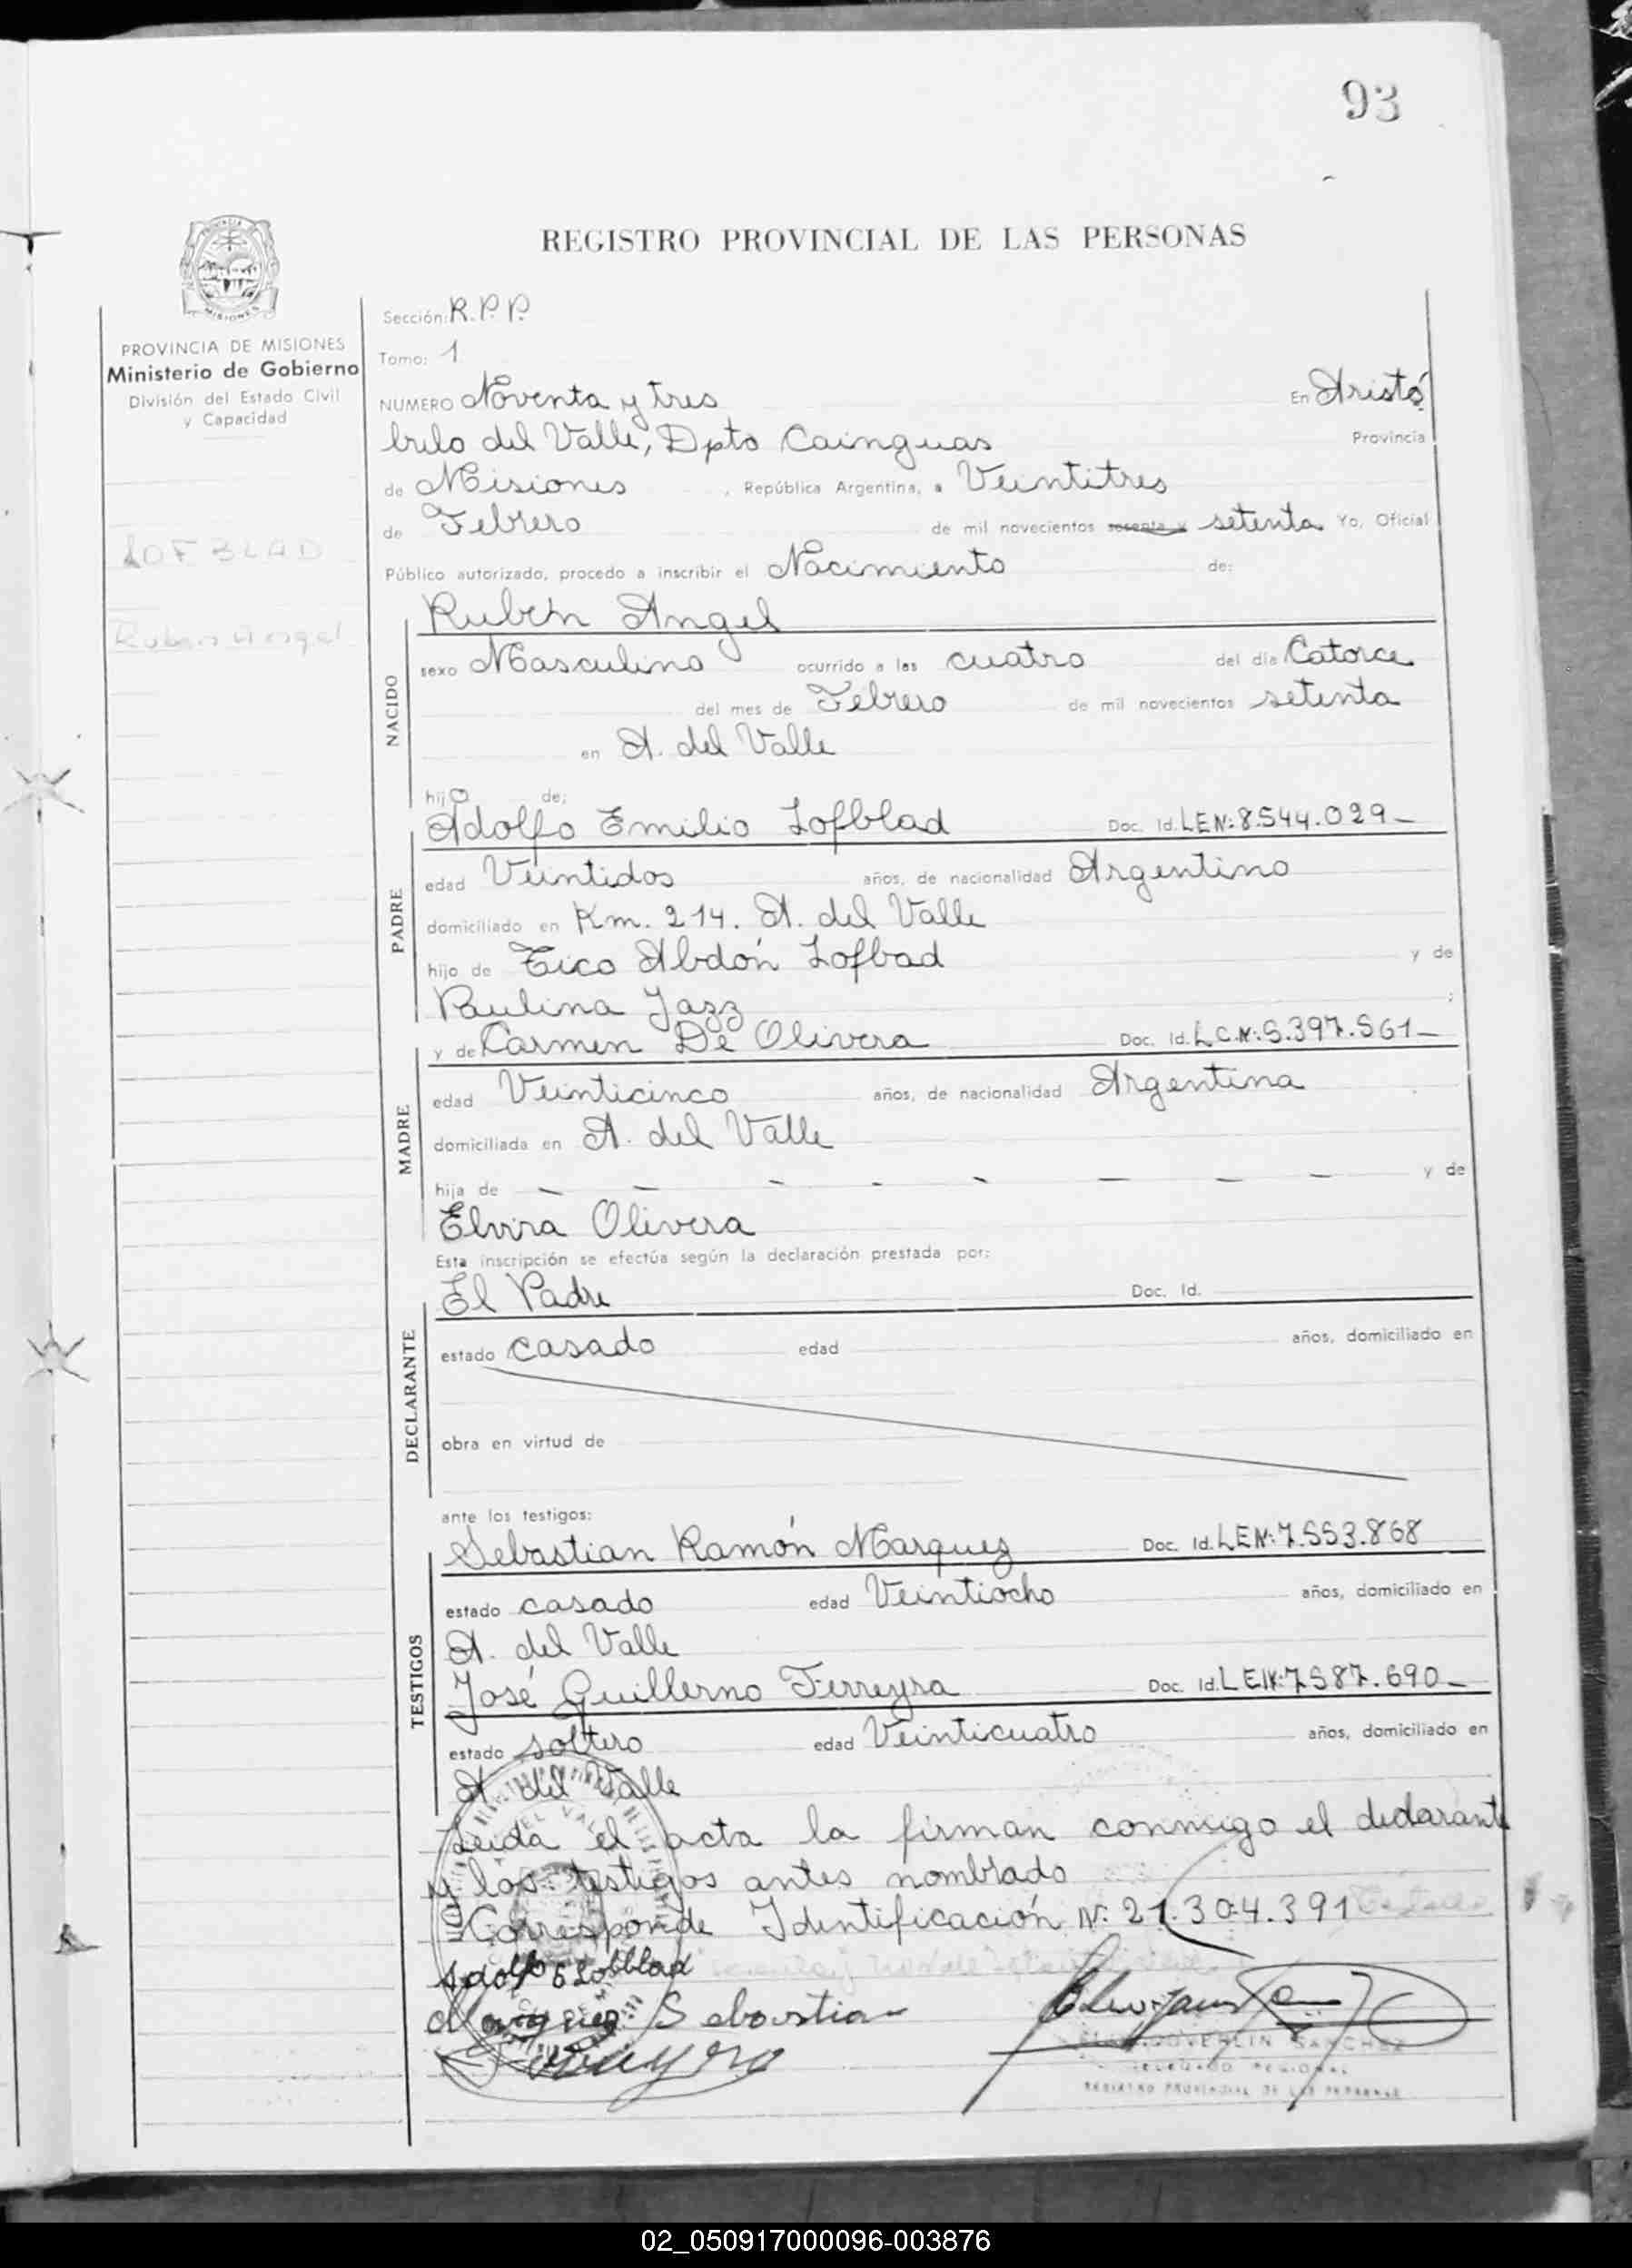 93
REGISTRO PROVINCIAL DE LAS PERSONAS
PROVINCIA DE MISIONES
Ministerio de Gobierno
División del Estado Civil
y Capacidad
LOFBLAD
Ruben Angel
Sección: R.P.P.
Tomo: 1
NUMERO Noventa y tres En Aristó
bulo del Valle, Dpto Cainguas Provincia
de Misiones, República Argentina, a Veintitres
de Febrero de mil novecientos sesenta y setenta Yo, Oficial
Público autorizado, procedo a inscribir el Nacimiento de:
NACIDO
Rubén Angel
sexo Masculino ocurrido a las cuatro del día Catorce
del mes de Febrero de mil novecientos setenta
en A. del Valle
hijo de:
PADRE
Adolfo Emilio Lofblad Doc. Id. LEN: 8.544.029-
edad Veintidos años, de nacionalidad Argentino
domiciliado en Km. 214. A. del Valle
hijo de Eico Abdón Lofbad y de
Paulina Jazz ;
MADRE
y de Carmen De Olivera Doc. Id. L.C.N: 5.397.561-
edad Veinticinco años, de nacionalidad Argentina
domiciliada en A. del Valle
hija de - - - - - - - - y de
Elvira Olivera
Esta inscripción se efectúa según la declaración prestada por:
DECLARANTE
El Padre Doc. Id.
estado casado edad años, domiciliado en
obra en virtud de
ante los testigos:
TESTIGOS
Sebastian Ramón Marquez Doc. Id. LEN: 7.553.868
estado casado edad Veintiocho años, domiciliado en
A. del Valle
José Guillerno Ferreyra Doc. Id. LEN: 7.587.690-
estado soltero edad Veinticuatro años, domiciliado en
A. del Valle
Leida el acta la firman conmigo el declarante
y los testigos antes nombrado
Corresponde Identificación N: 21.304.391
Adolfo E Lofblad
Marquez Sebastian
Ferreyra
SANCHEZ
DELEGADO REGIONAL
REGISTRO PROVINCIAL DE LAS PERSONAS
02_050917000096-003876